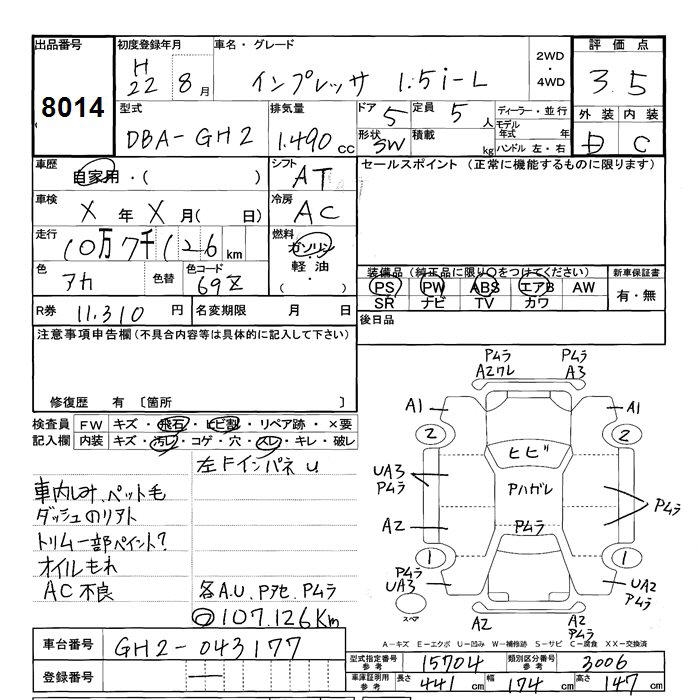 出品番号 初度登録年月 車名・グレード 2WD・4WD 評価点
8014 H 22 8月 インプレッサ 1.5i-L 3.5
型式 排気量 ドア 5 定員 5人 ディーラー・並行 外装 内装
DBA-GH2 1.490cc 形状 5W 積載 kg モデル年式 年 ハンドル 左・右 D C
車歴 自家用・( ) シフト AT セールスポイント (正常に機能するものに限ります)
車検 X年X月( 日) 冷房 AC
走行 10万7千126km 燃料 ガソリン 軽油 ( )
色 アカ 色替 色コード 69Z
装備品(純正品に限り○をつけてください) 新車保証書
PS PW ABS エアB AW 有・無
SR ナビ TV カワ
R券 11.310円 名変期限 月 日 後日品
注意事項申告欄(不具合内容等は具体的に記入して下さい)
修復歴 有 〔箇所 〕
検査員記入欄 FW キズ・飛石・ヒビ割・リペア跡・×要
内装 キズ・汚レ・コゲ・穴・スレ・キレ・破レ
左FインパネU
車内しみ、ペット毛
ダッシュのリアト
トリム一部ペイント?
オイルもれ
AC不良
各A.U.Pアセ.Pムラ
◎107.126Km
Pムラ Pムラ
A2ワレ A3
A1 A1
2 2
ヒビ
UA3 Pムラ Pハガレ Pムラ
A2 Pムラ
1 1
Pムラ UA3 UA2 Pムラ
スペア A2 A2 Pムラ
A－キズ E－エクボ U－凹み W－補修跡 S－サビ C－腐食 XX－交換済
車台番号 GH2-043177
登録番号 —
型式指定番号参考 15704 類別区分番号参考 3006
車庫証明用参考 長さ 441cm 幅 174cm 高さ 147cm